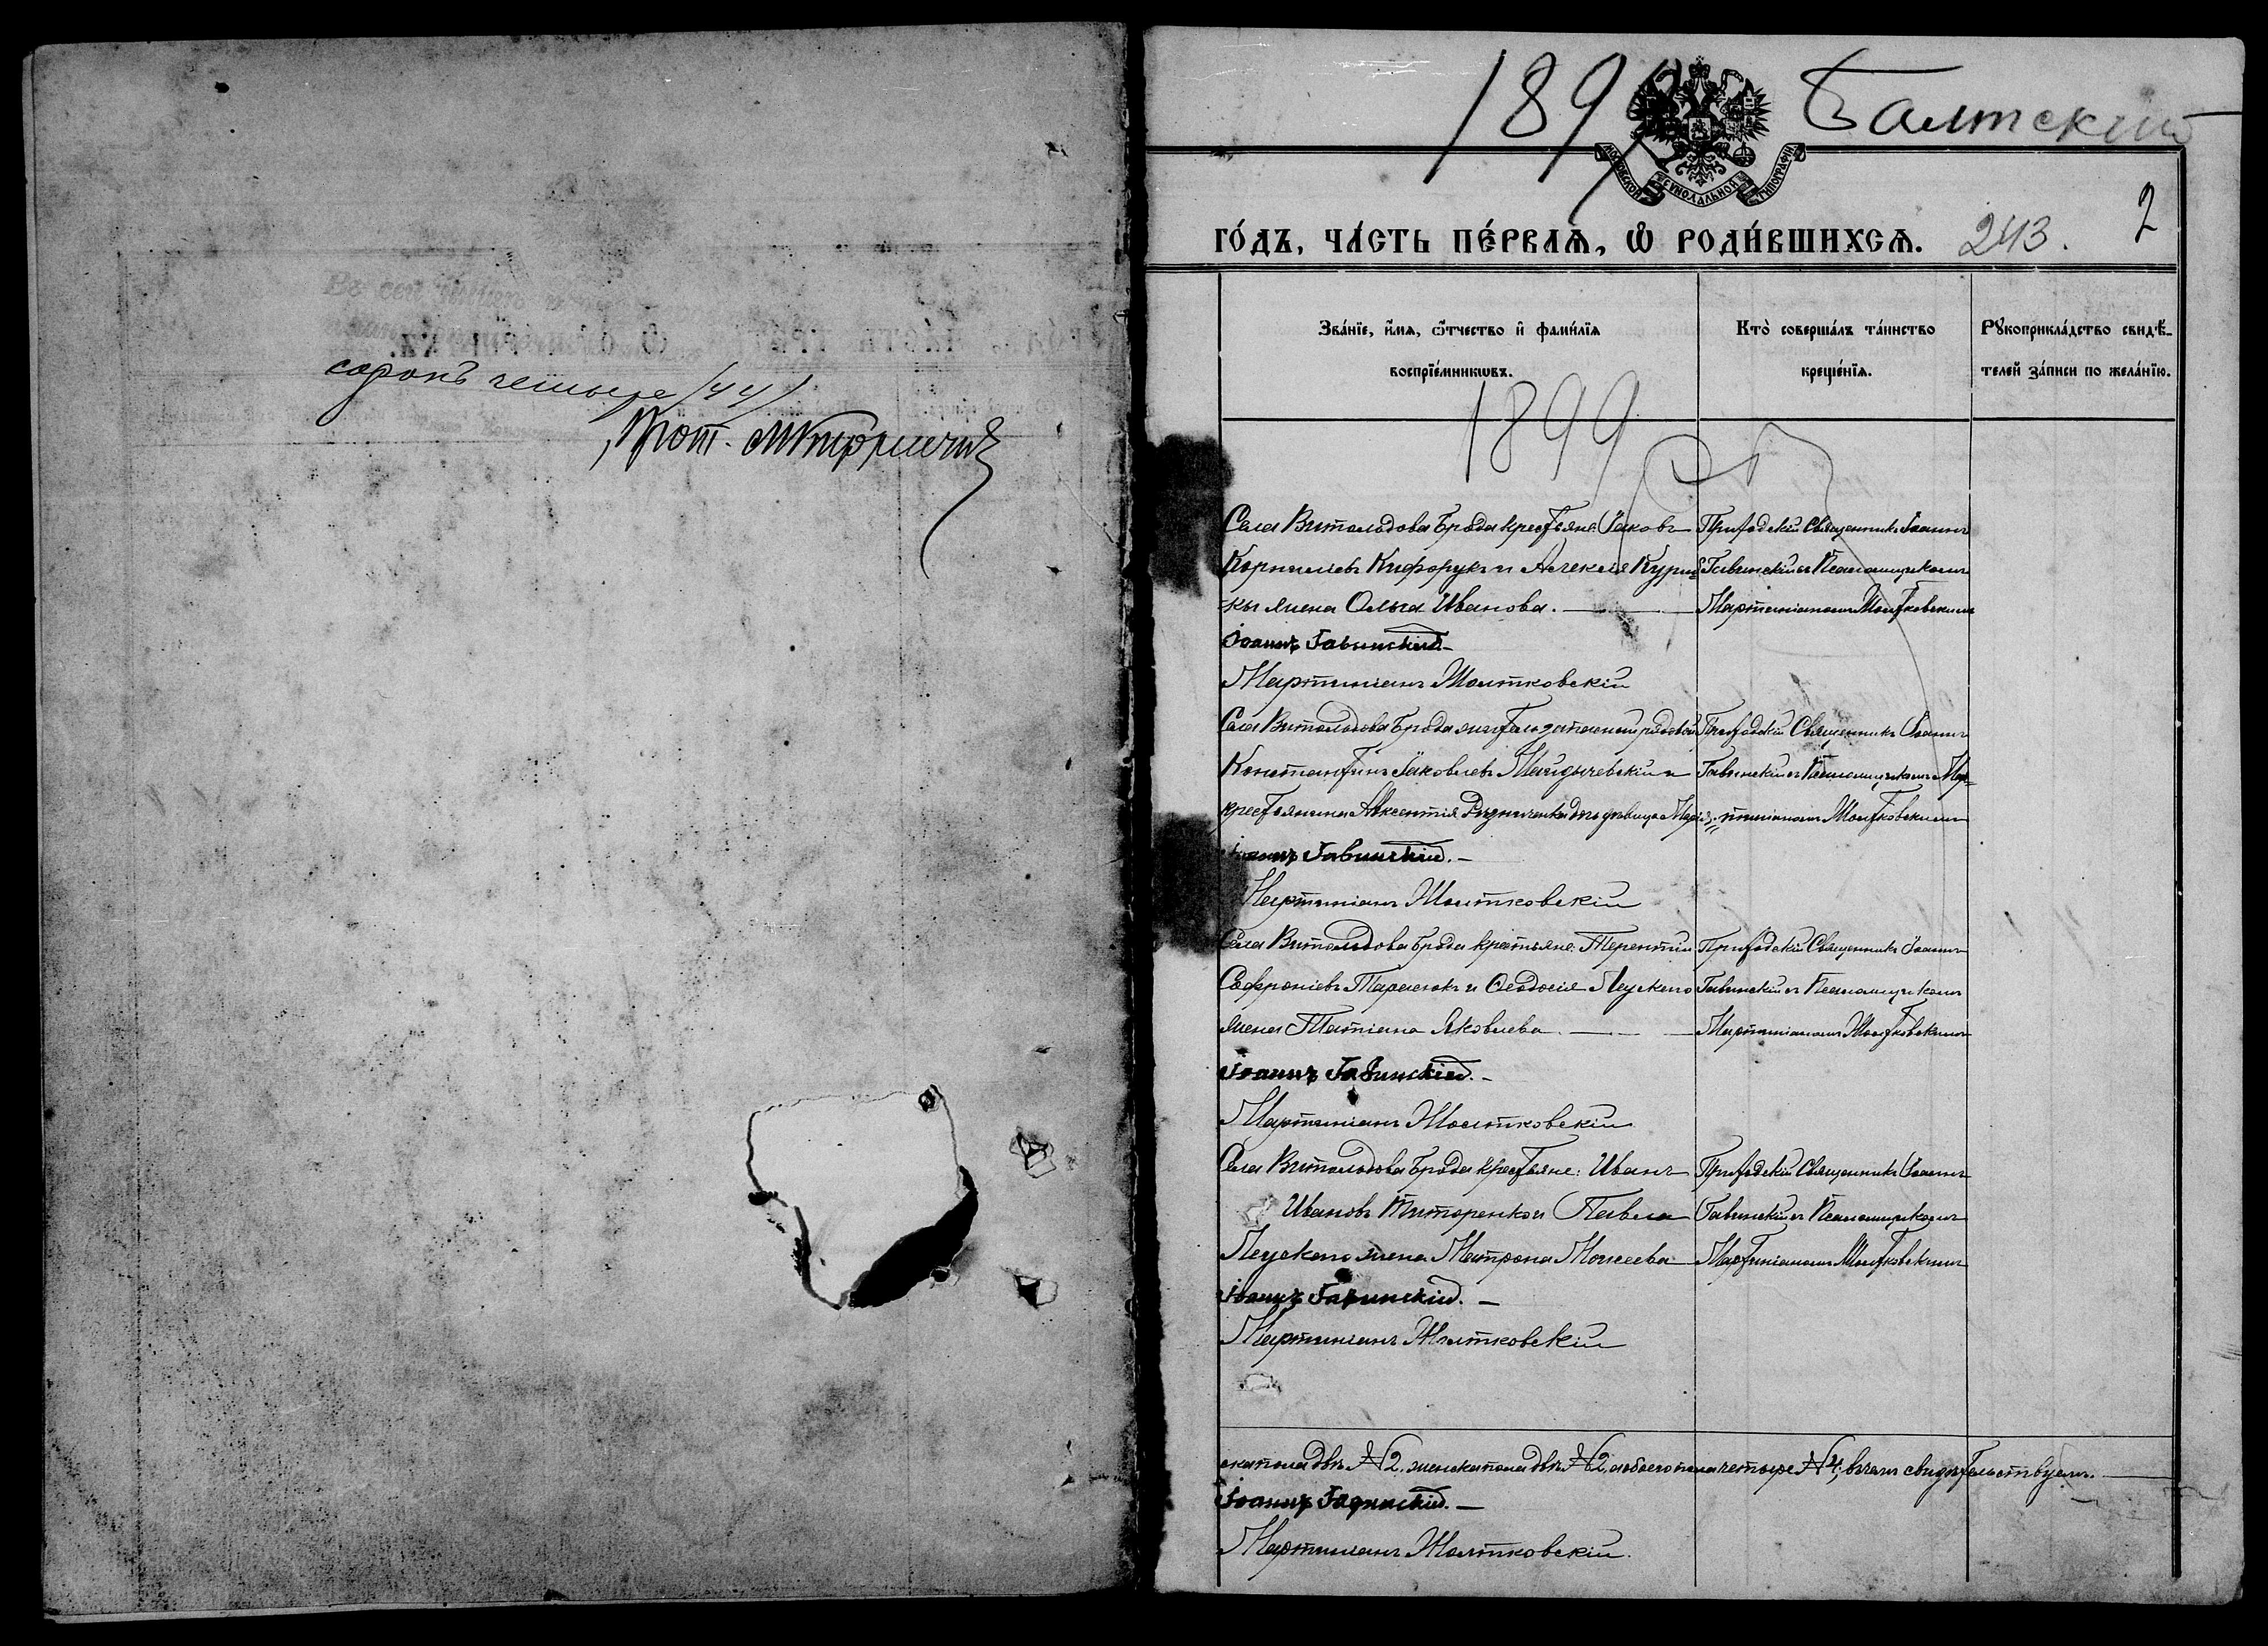 сорокъ четыре /44/
Прот.
1899 Балтскій
МОСКОВСКОЙ СѴНОДАЛЬНОЙ ТИПОГРАФІИ
2
го́дъ, ча́сть пе́рваѧ, ѡ҆ роди́вшихсѧ. 243.
Зва́нїе, и҆́мѧ, ѻ҆́тчество и҆ фами́лїѧ
воспрїе́мникѡвъ.
Кто̀ соверша́лъ та́инство
креще́нїѧ.
Рꙋкоприкла́дство свидѣ́-
телей за́писи по жела́нїю.
1899
Села Витольдова Брода крестьяне: Іаковъ
Корниліевъ Кифорукъ и Алексія Куриц
кы жена Ольга Иванова.
Іоаннъ Гавинскій.
Мартиніанъ Молтковскій
Приходскій Священникъ Іоаннъ
Гавинскій съ Псаломщикомъ
Мартиніаномъ Молтковскимъ
Села Витольдова Брода запасный рядовой
Константинъ Іаковлевъ Майдычевскій и
крестьянина Авксентія Резниченка дочь дѣвица
Іоаннъ Гавинскій.
Мартиніанъ Молтковскій
Приходскій Священникъ Іоаннъ
Гавинскій съ Псаломщикомъ Мар-
тиніаномъ Молтковскимъ
Села Витольдова Брода крестьяне: Терентій
Софроніевъ Тарасюкъ и Ѳеодосія Леускаго
жена Татіана Яковлева.
Іоаннъ Гавинскій.
Мартиніанъ Молтковскій
Приходскій Священникъ Іоаннъ
Гавинскій съ Псаломщикомъ
Мартиніаномъ Молтковскимъ
Села Витольдова Брода крестьяне: Иванъ
Ивановъ Титаренко и Павла
Леускаго жена Матрона Моисеева
Іоаннъ Гавинскій.
Мартиніанъ Молтковскій
Приходскій Священникъ Іоаннъ
Гавинскій съ Псаломщикомъ
Мартиніаномъ Молтковскимъ
ска пола два №2, женска пола двѣ №2, а обоего пола четыре №4, въ чемъ свидѣтельствуемъ.
Іоаннъ Гавинскій.
Мартиніанъ Молтковскій.